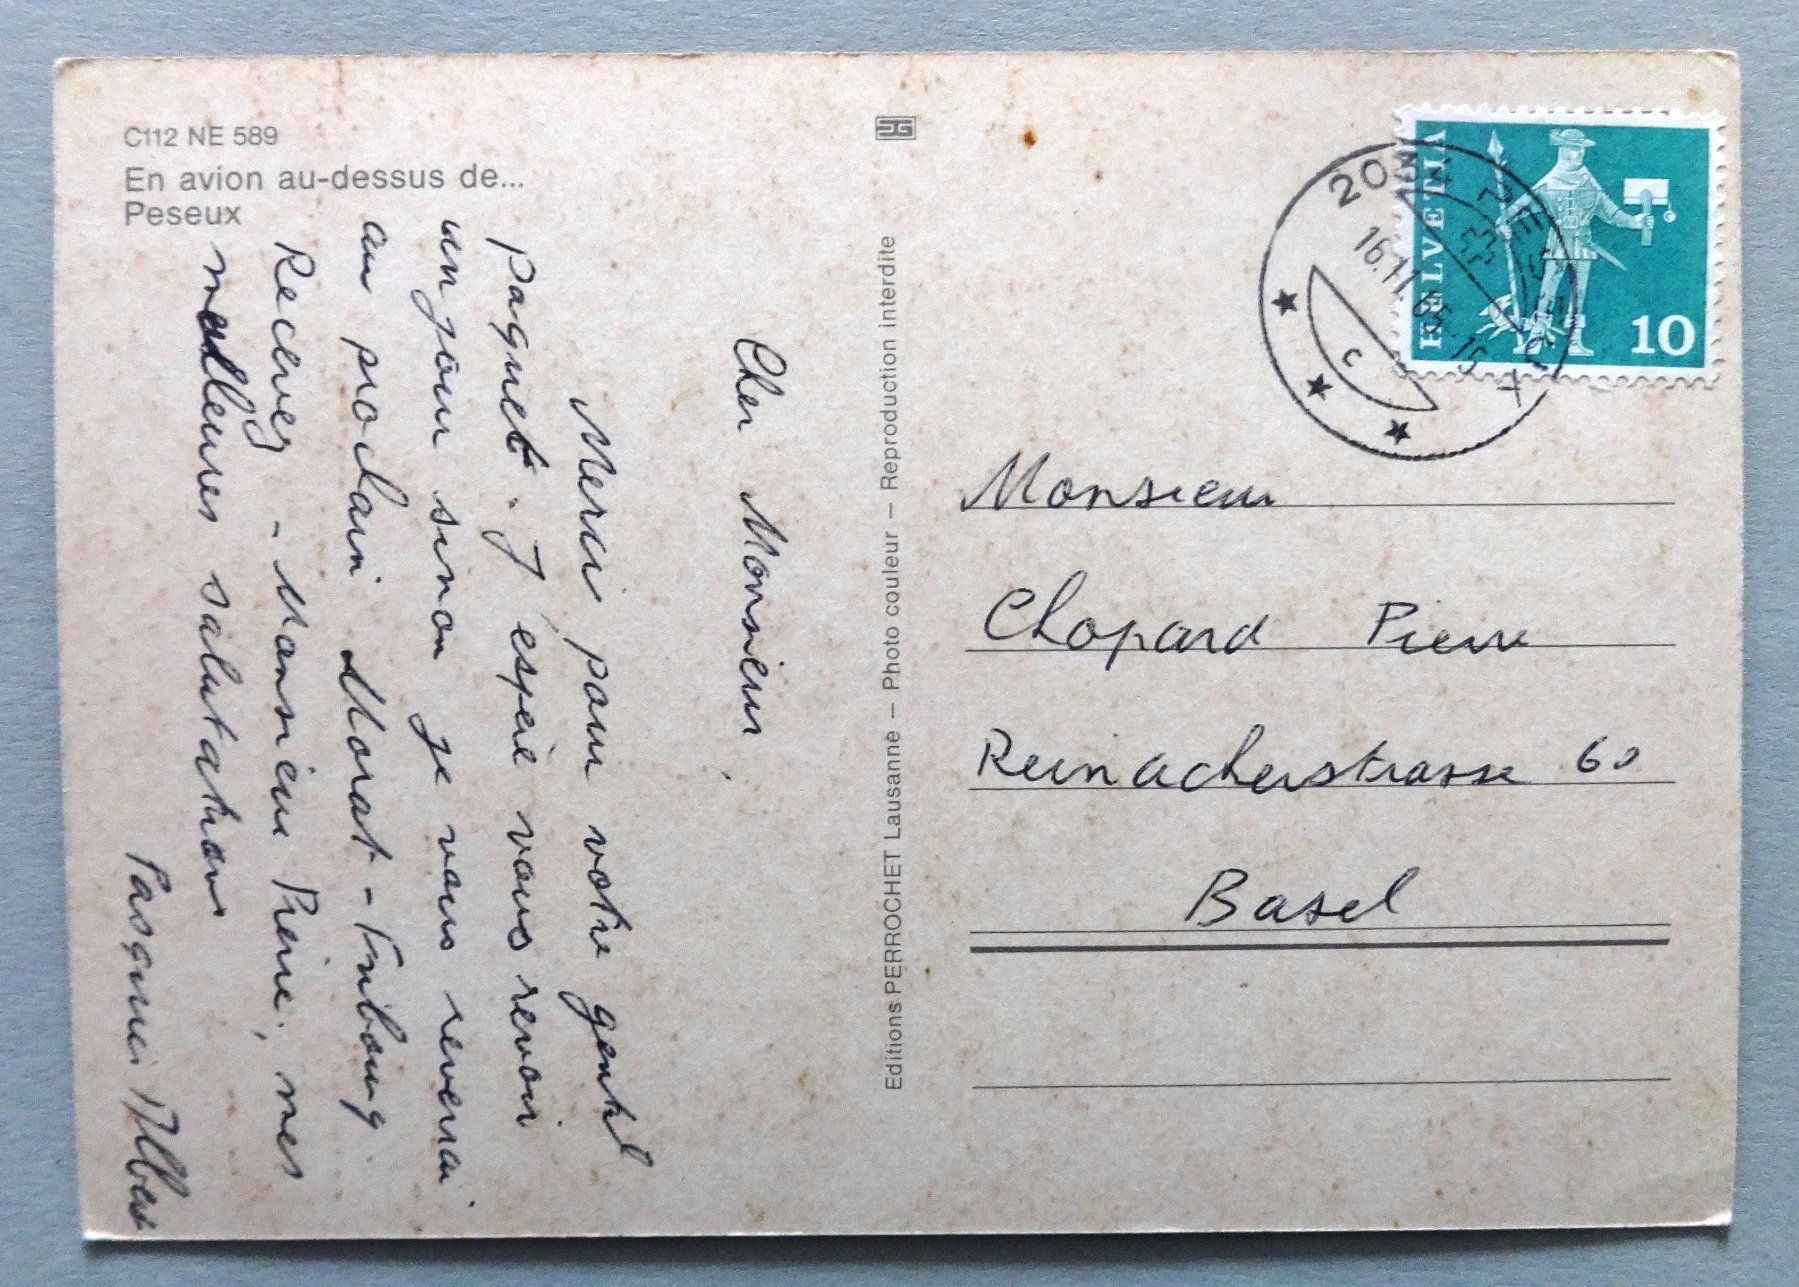 C112 NE 589
En avion au-dessus de...
Peseux
Cher Monsieur,
Merci pour votre gentil
paquet. J'espère vous revoir
un jour sinon je vous reverrai
au prochain Morat-Fribourg
Recevez - Monsieur Pierre, mes
meilleures salutations
Pasquier Albert
Editions PERROCHET Lausanne – Photo couleur – Reproduction interdite
HELVETIA
10
PESEUX
16.11.65.-15
C
Monsieur
Chopard Pierre
Reinacherstrasse 60
Basel